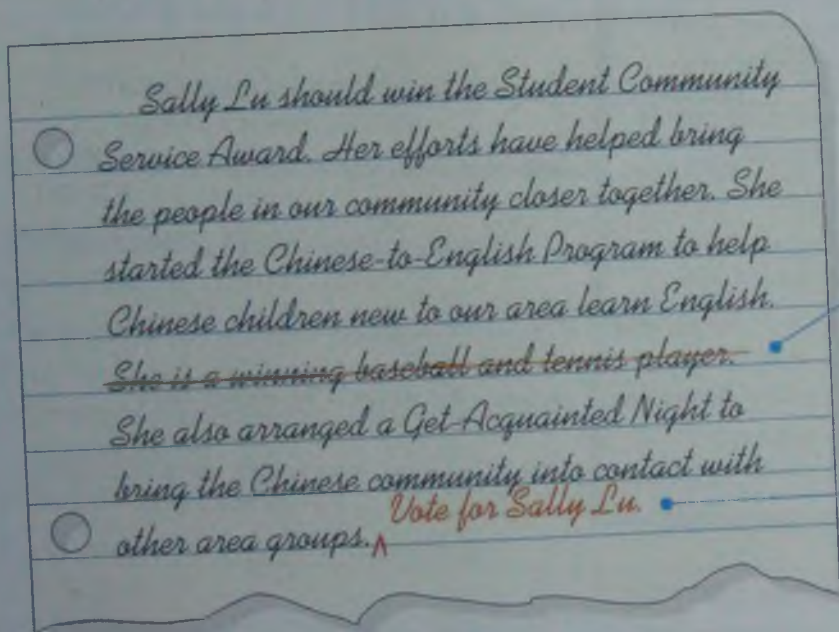 Sally Lu should win the Student Community
Service Award. Her efforts have helped bring
the people in our community closer together. She
started the Chinese-to-English Program to help
Chinese children new to our area learn English.
She is a winning baseball and tennis player.
She also arranged a Get-Acquainted Night to
bring the Chinese community into contact with
other area groups. Vote for Sally Lu.